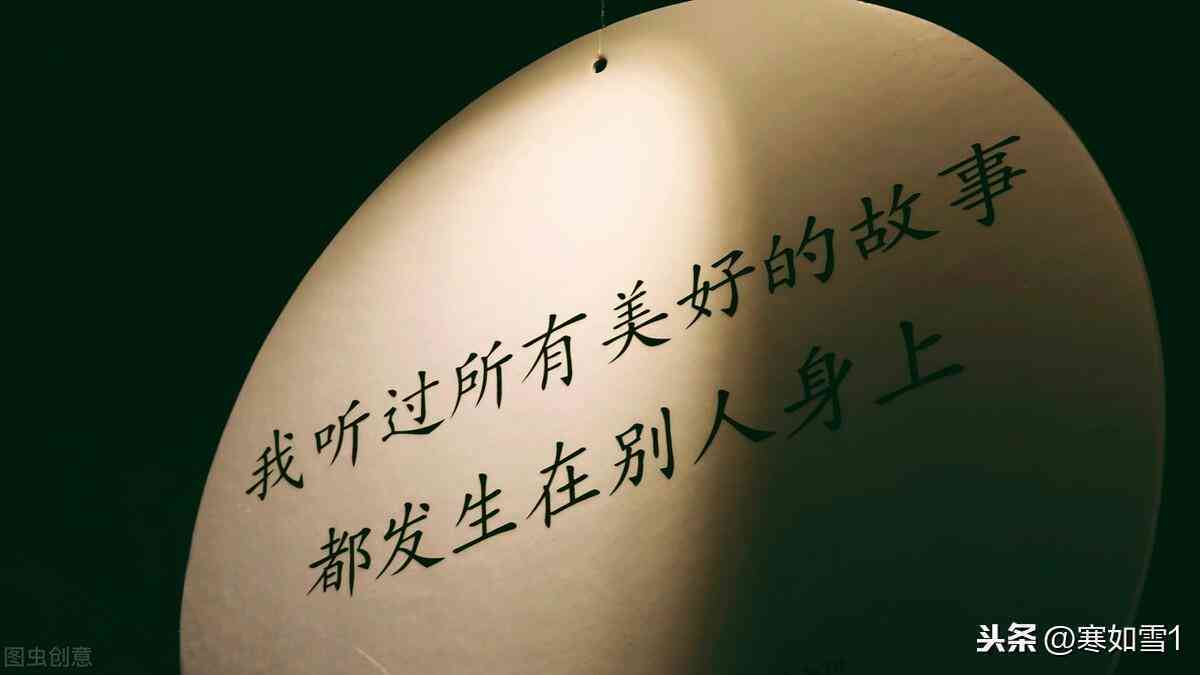 我听过所有美好的故事
都发生在别人身上
图虫创意
头条 @寒如雪1